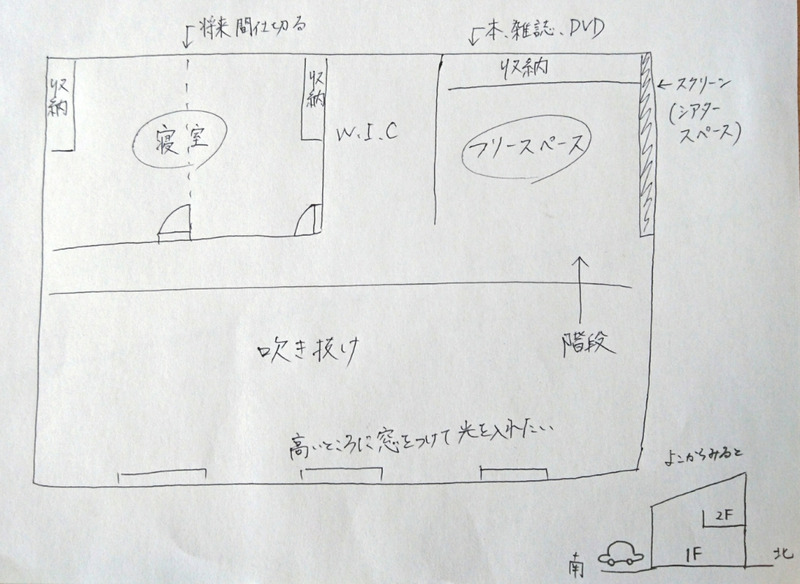 将来間仕切る
本、雑誌、DVD
収納
収納
収納
スクリーン
(シアター
スペース)
寝室
W.I.C
フリースペース
吹き抜け
階段
高いところに窓をつけて光を入れたい
よこからみると
2F
1F
南
北